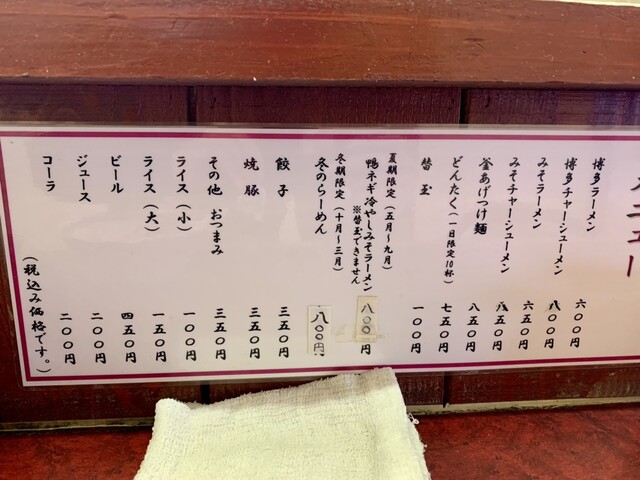 メニュー
博多ラーメン 六〇〇円
博多チャーシューメン 八〇〇円
みそラーメン 六五〇円
みそチャーシューメン 八五〇円
釜あげつけ麺 八五〇円
どんたく(一日限定10杯) 七五〇円
替玉 一〇〇円
夏期限定(五月〜九月)
鴨ネギ冷やしみそラーメン 八〇〇円
※替玉できません
冬期限定(十月〜三月)
冬のらーめん 八〇〇円
餃子 三五〇円
焼豚 三五〇円
その他 おつまみ 三五〇円
ライス(小) 一〇〇円
ライス(大) 一五〇円
ビール 四五〇円
ジュース 二〇〇円
コーラ 二〇〇円
(税込み価格です。)